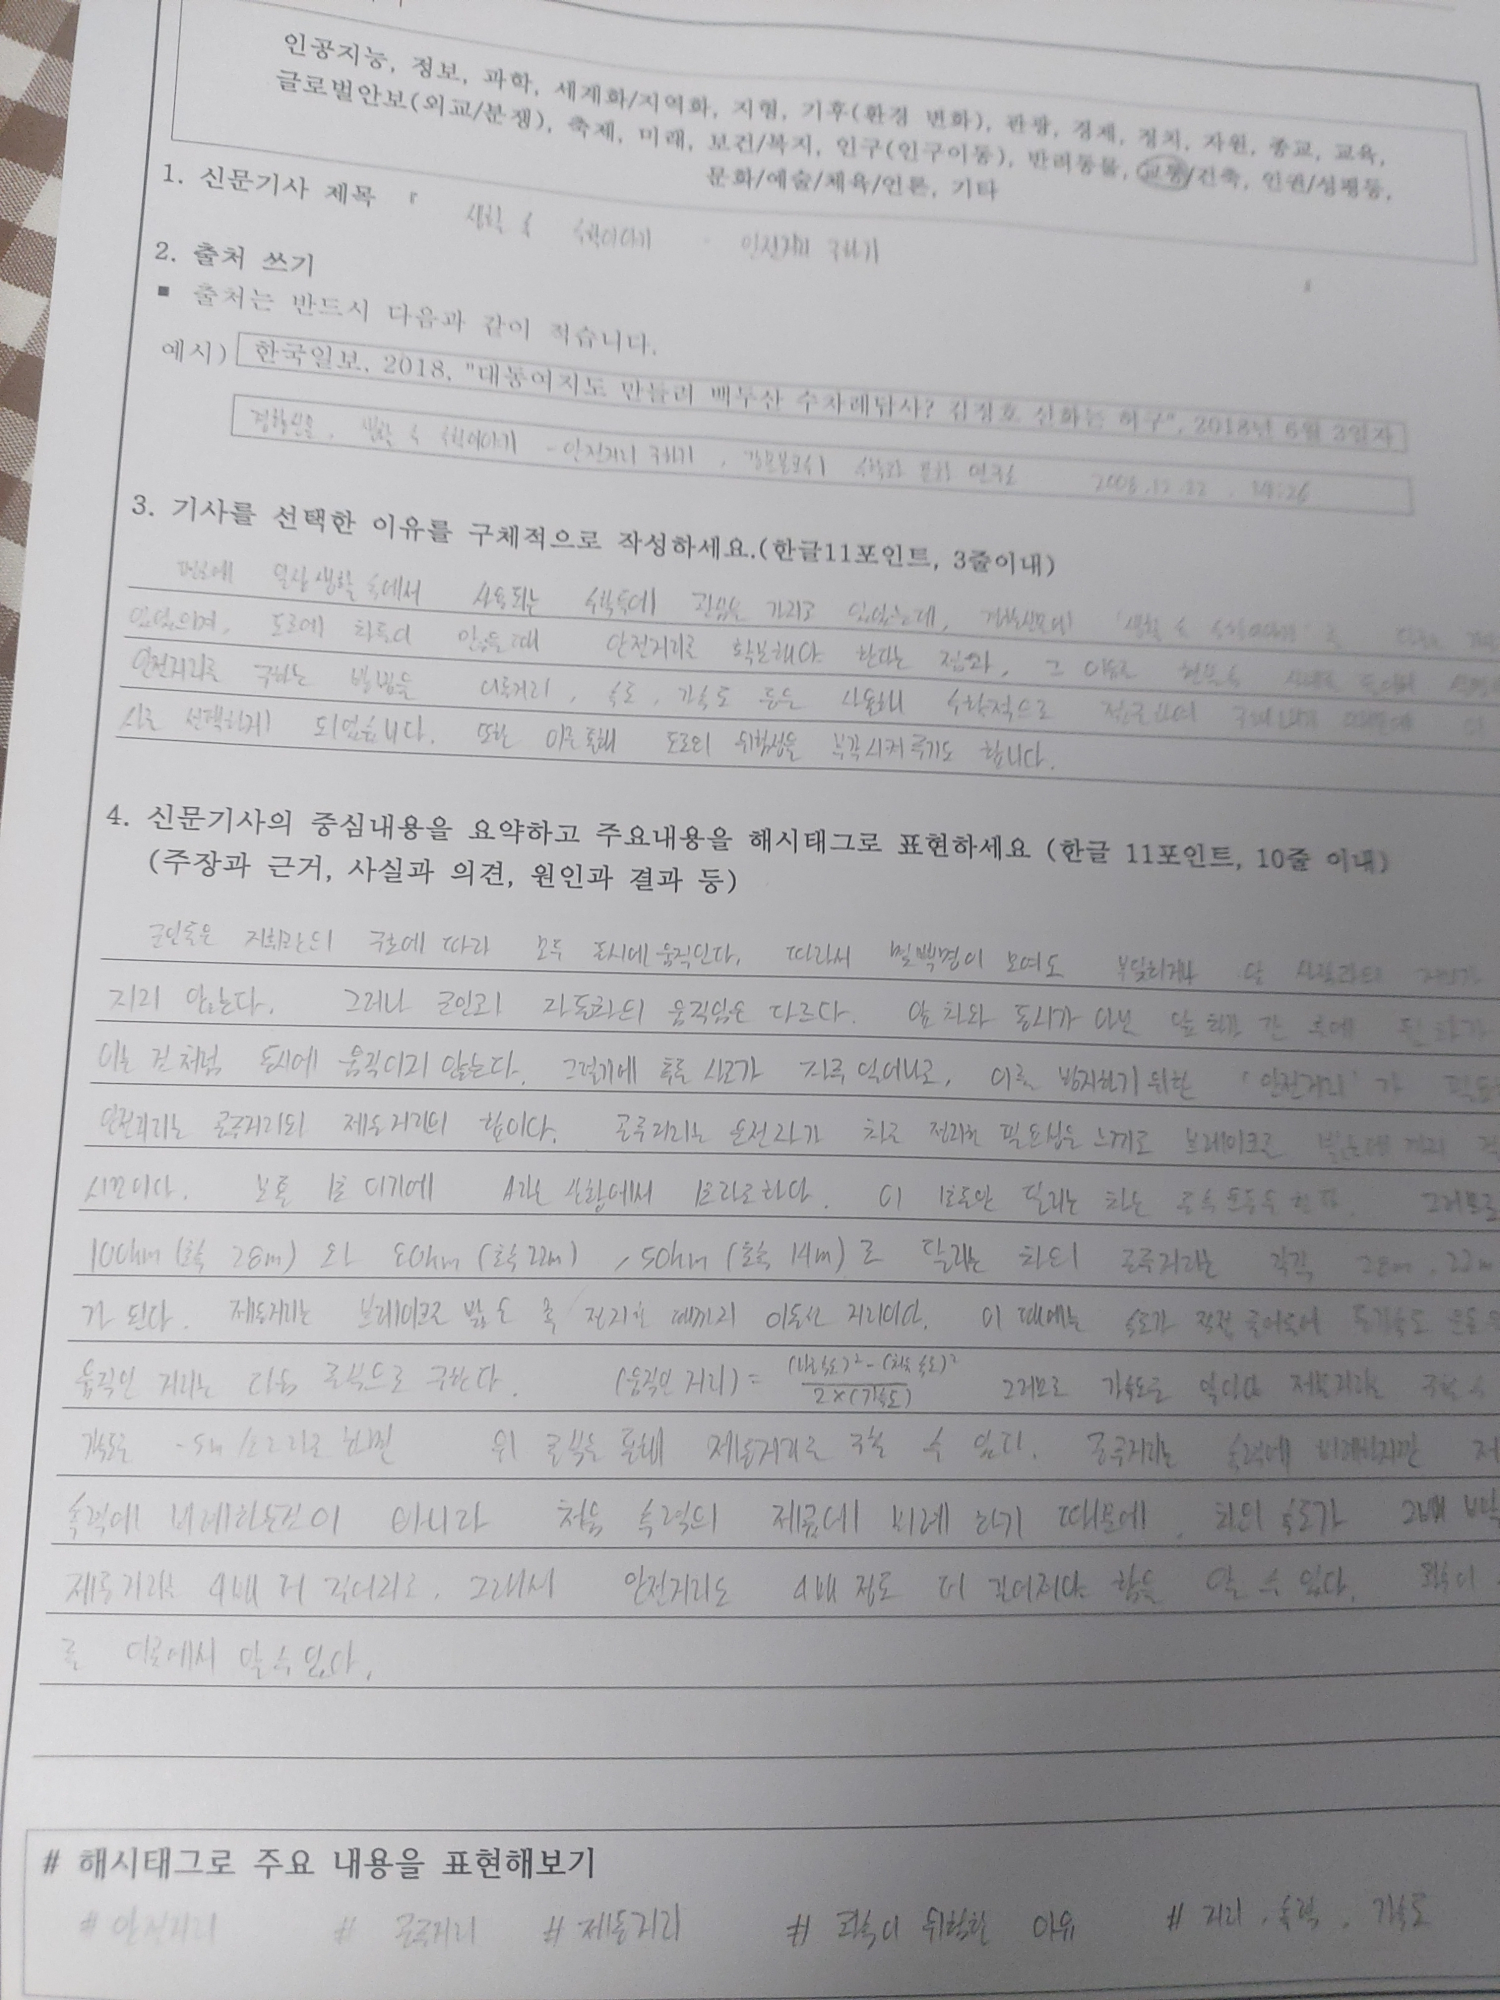 인공지능, 정보, 과학, 세계화/지역화, 지형, 기후(환경 변화), 관광, 경제, 정치, 자원, 종교, 교육,
글로벌안보(외교/분쟁), 축제, 미래, 보건/복지, 인구(인구이동), 반려동물, 교통/건축, 인권/성평등,
문화/예술/체육/언론, 기타
1. 신문기사 제목 「 생활 속 수학이야기 - 안전거리 구하기
2. 출처 쓰기
▪ 출처는 반드시 다음과 같이 적습니다.
예시) 한국일보. 2018. "대동여지도 만들려 백두산 수차례답사? 김정호 신화는 허구", 2018년 6월 3일자
생활 속 수학이야기 - 안전거리 구하기, 연구소
3. 기사를 선택한 이유를 구체적으로 작성하세요.(한글11포인트, 3줄이내)
평소에 일상생활 속에서 사용되는 수학들에 관심을 가지고 있었는데, '생활 속 수학이야기'
있었으며, 도로에 차들이 있을때 안전거리를 확보해야 한다는 점과, 그 이유를
안전거리를 구하는 방법을 이동거리, 속도, 가속도 등을 사용해 수학적으로
사를 선택하게 되었습니다. 또한 이를 통해 도로의 위험성을 부각시켜 주기도 합니다.
4. 신문기사의 중심내용을 요약하고 주요내용을 해시태그로 표현하세요 (한글 11포인트, 10줄 이내)
(주장과 근거, 사실과 의견, 원인과 결과 등)
군인들은 지휘관의 구호에 따라 모두 동시에 움직인다. 따라서 몇백명이 모여도 부딪히거나
지지 않는다. 그러나 군인과 자동차의 움직임은 다르다. 앞 차와 동시가 아닌 앞 차가 간 후에 뒤 차가
이는 것처럼 동시에 움직이지 않는다. 그렇기에 추돌 사고가 자주 일어나고, 이를 방지하기 위한 '안전거리'가
안전거리는 공주거리와 제동거리의 합이다. 공주거리는 운전자가 차를 정지할 필요성을 느끼고 브레이크를 밟는데 까지
시간이다. 보통 1초 이기에 상황에서 1초라고하자. 이 1초동안 달리는 차는 등속운동을 한다. 그러므로
100km (초속 28m) 와 80km (초속 22m), 50km (초속 14m) 로 달리는 차의 공주거리는 각각 28m, 22m
가 된다. 제동거리는 브레이크를 밟은 후 정지할 때까지 이동한 거리이다. 이 때에는 속도가 점점 줄어들어 등가속도 운동
움직인 거리는 다음 공식으로 구한다. (움직인 거리) = (나중속도)² - (처음속도)² / 2×(가속도) 그러므로 가속도를 알아야 제동거리를 구할 수
가속도를 -5m/s² 라고 하면 위 공식을 통해 제동거리를 구할 수 있다. 공주거리는 속력에 비례하지만
속력에 비례하는것이 아니라 처음 속력의 제곱에 비례 하기 때문에, 차의 속도가 2배
제동거리는 4배 더 길어지고, 그래서 안전거리도 4배 정도 더 길어져야 함을 알 수 있다. 과속이
를 이곳에서 알 수 있다.
# 해시태그로 주요 내용을 표현해보기
# 안전거리 # 공주거리 # 제동거리 # 과속이 위험한 이유 # 거리, 속력, 가속도